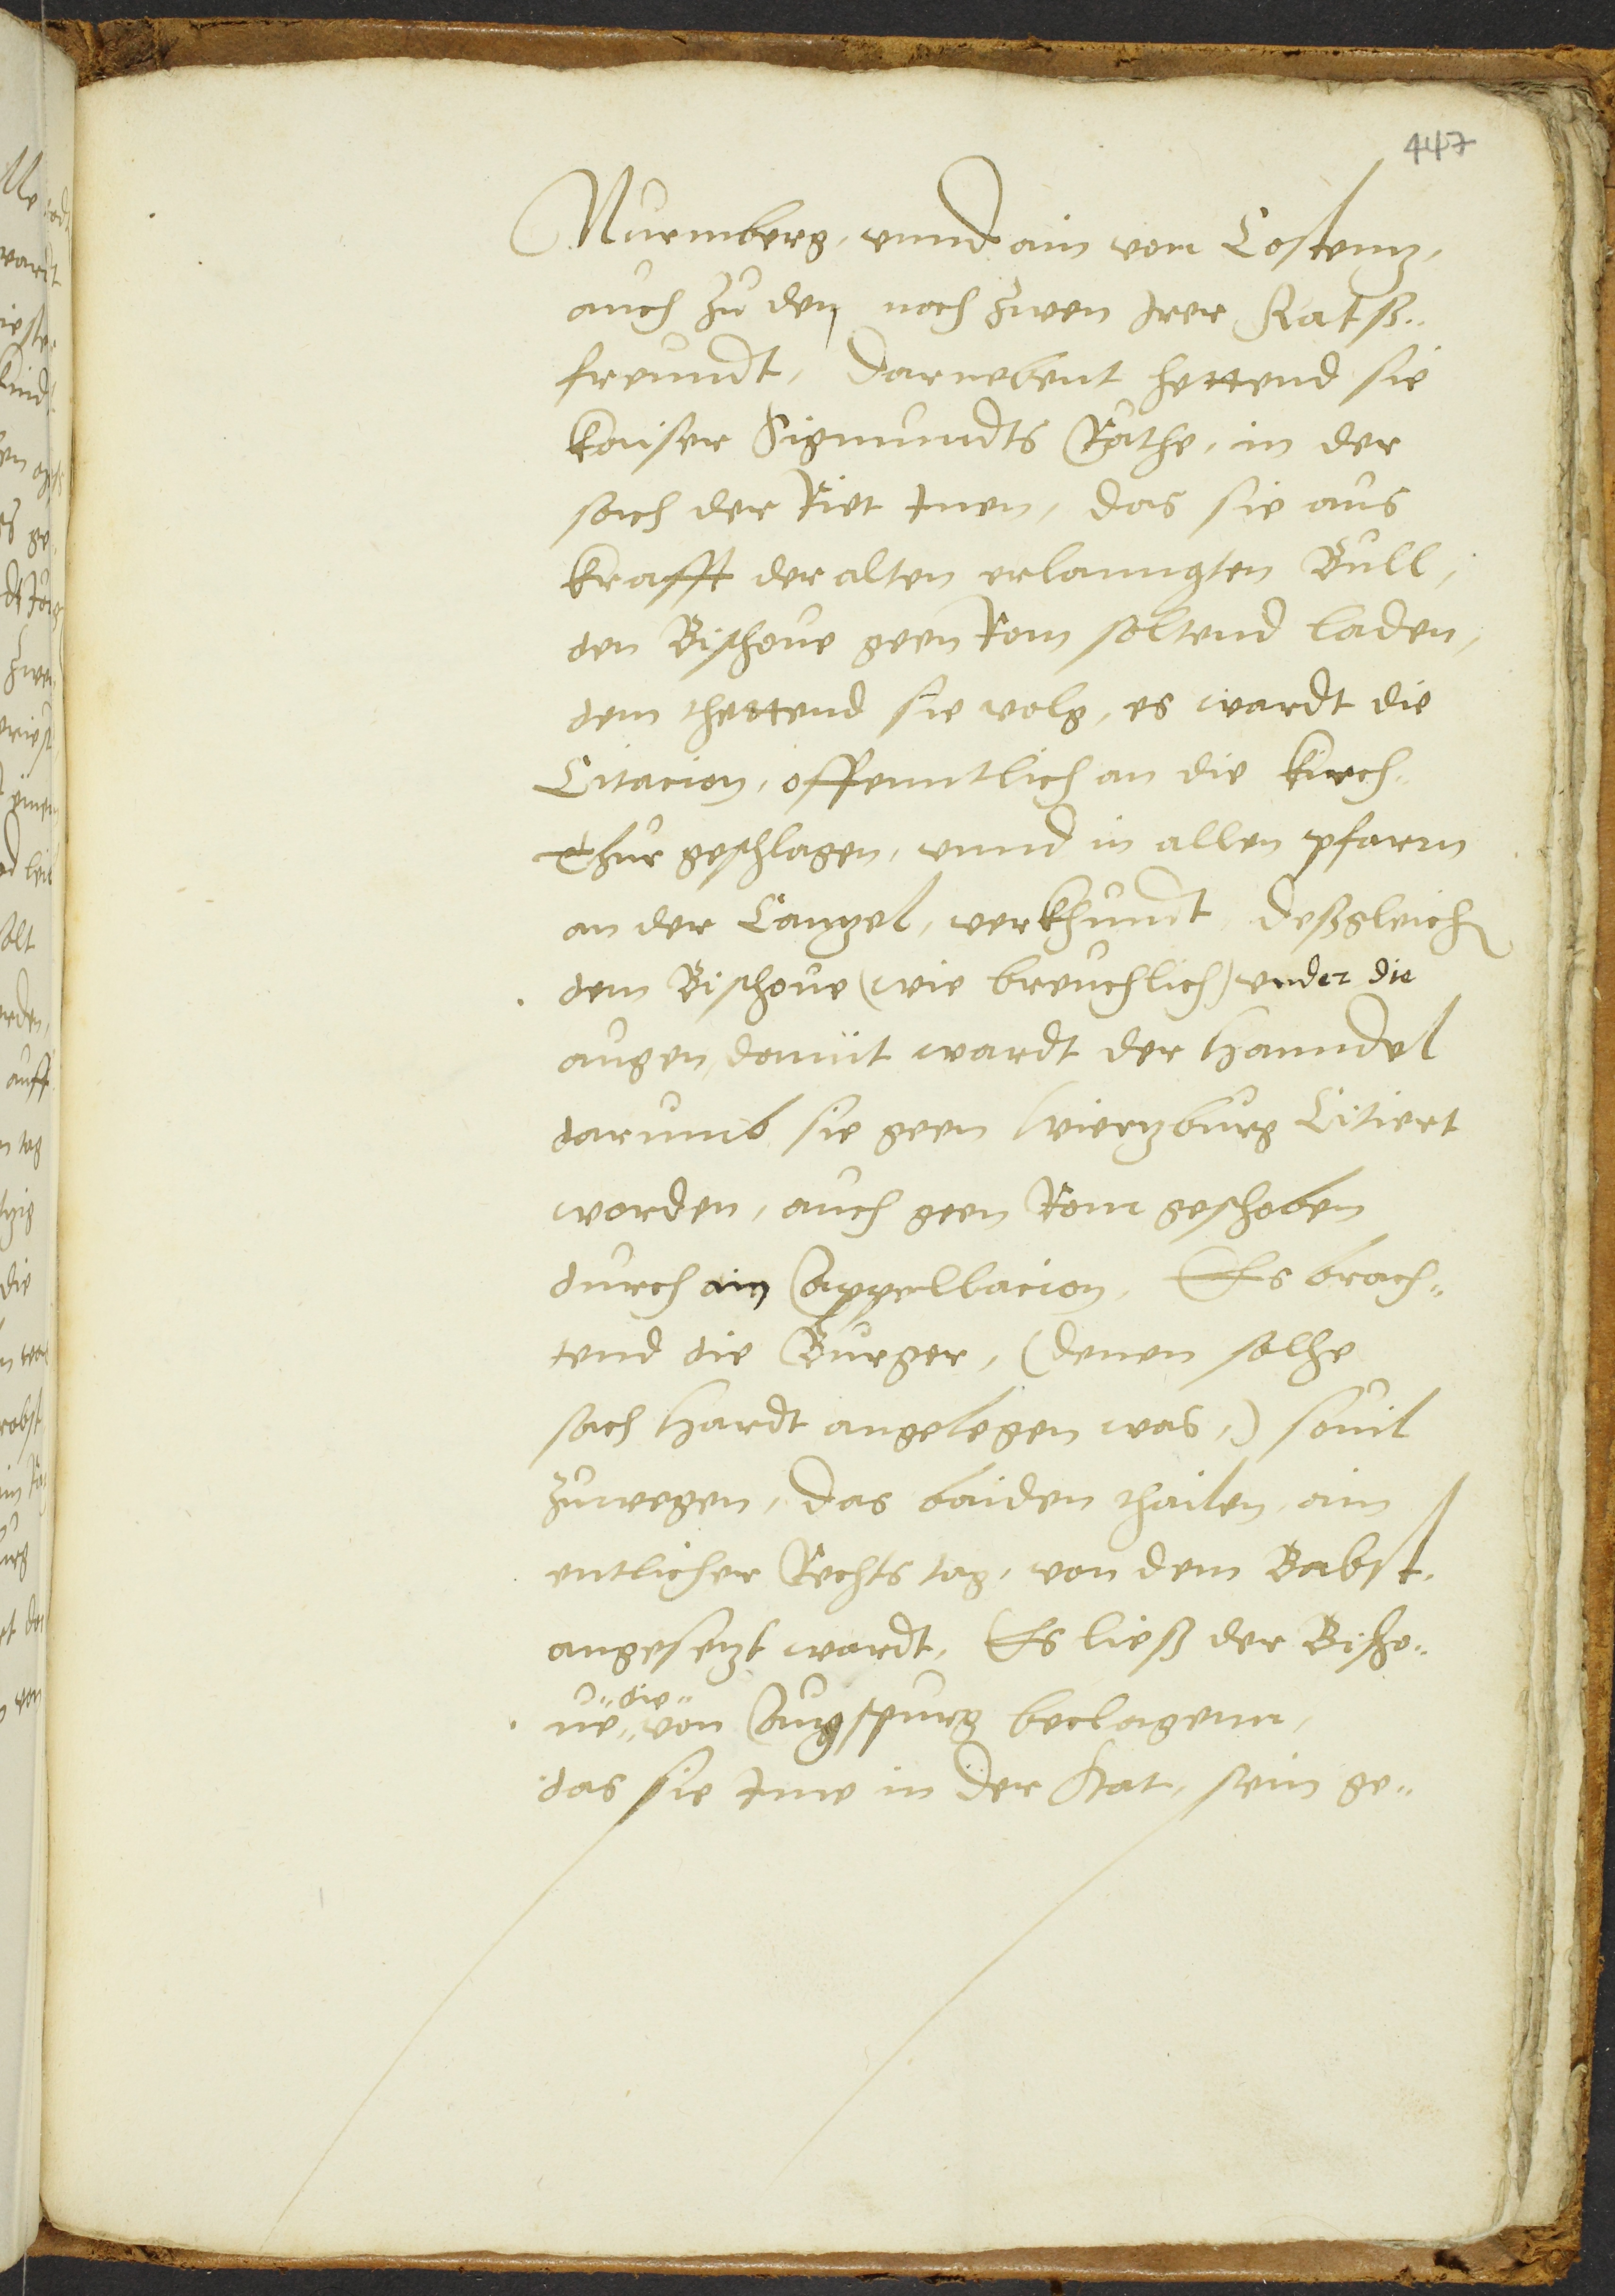 447
Nurmberg, vnnd ain von Costenz,
auch zu den noch zwen Irer Ratß¬
freundt, Darnebent hettend sie
kaiser Sigmundts Räthe, in der
sach der Riet Inen, das sie aus
krafft der alten erlanngten Bull,
den Bischoue geen Rom soltend laden,
dem thettend sie volg, es wardt die
Citacion, offenntlich an die kirch¬
Thür geschlagen, vnnd in allen pfarrn
an der Canzel, verkhundt, deßgleichen
dem Bischoue (wie breuchlich) vnder die
augen, damit wardt der Hanndel
darumb sie geen Wierzburg Citiert
worden, auch geen Rom geschoben
durch ain Appellacion, Es brach¬
tend die Burger, (denen solhe
sach Hardt angelegen was,) souil
zuwegen, das baiden thailen, ain
entlicher Rechts tag, von dem Babst,
angesezt wardt, Es ließ der Bischo¬
ue die von Augspurg beclagenn,
das sie Ime in der Stat, sein ge¬